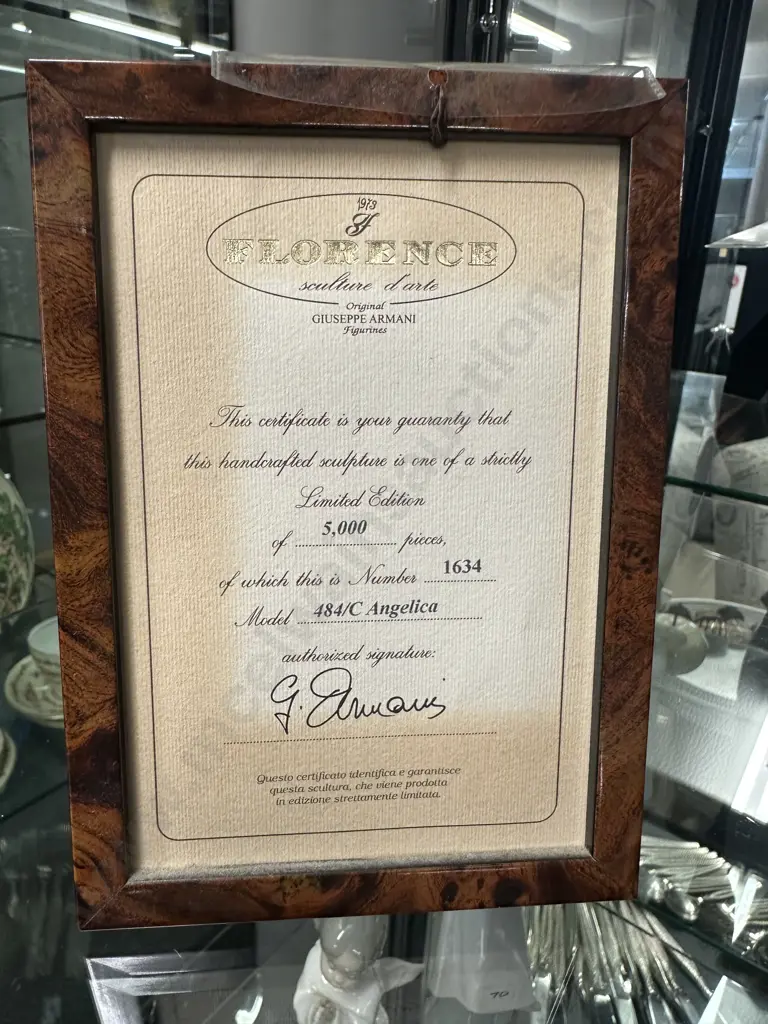 1973
FLORENCE
sculture d'arte
Original
GIUSEPPE ARMANI
Figurines
This certificate is your guaranty that
this handcrafted sculpture is one of a strictly
Limited Edition
of 5,000 pieces,
of which this is Number 1634
Model 484/C Angelica
authorized signature:
G. Armani
Questo certificato identifica e garantisce
questa scultura, che viene prodotta
in edizione strettamente limitata.
70